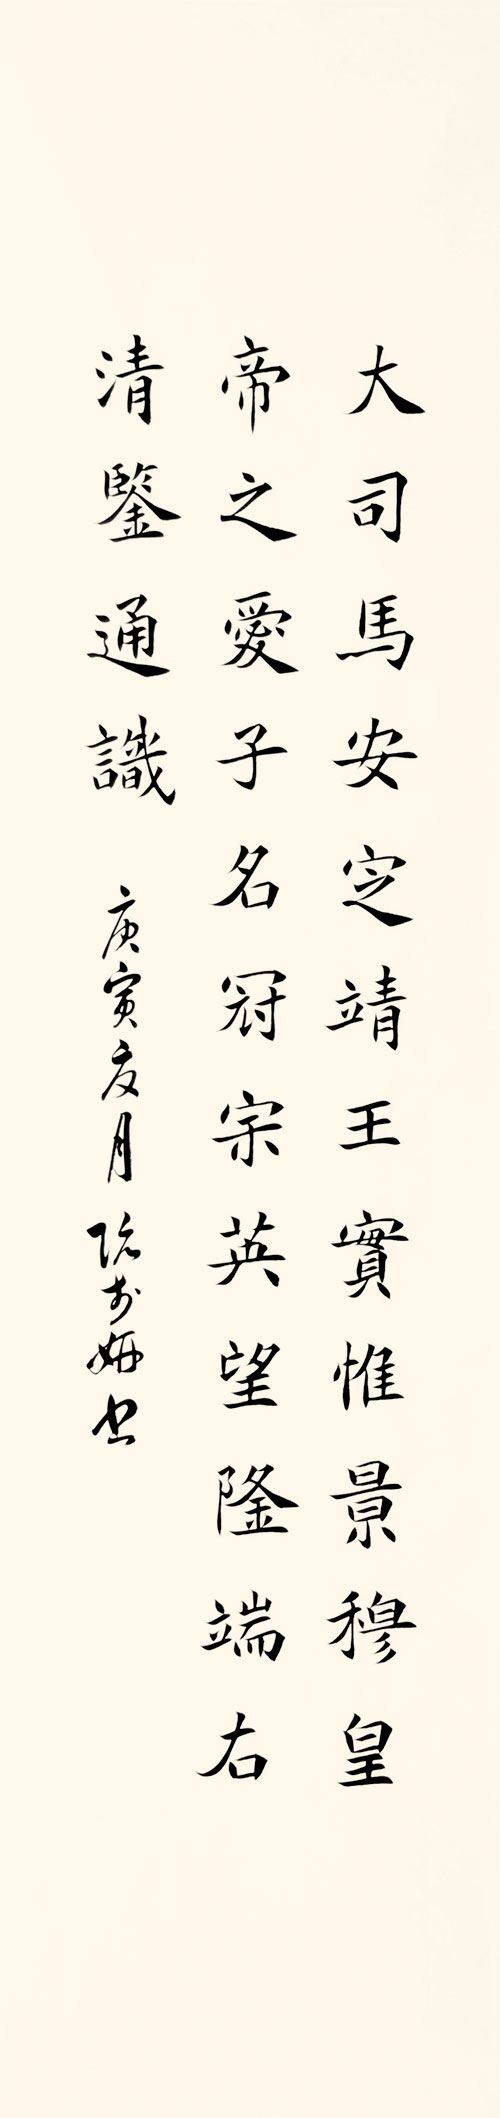 大司馬安定靖王實惟景穆皇
帝之愛子名冠宗英望隆端右
清鑒通識
庚寅夏月 阮 妍书